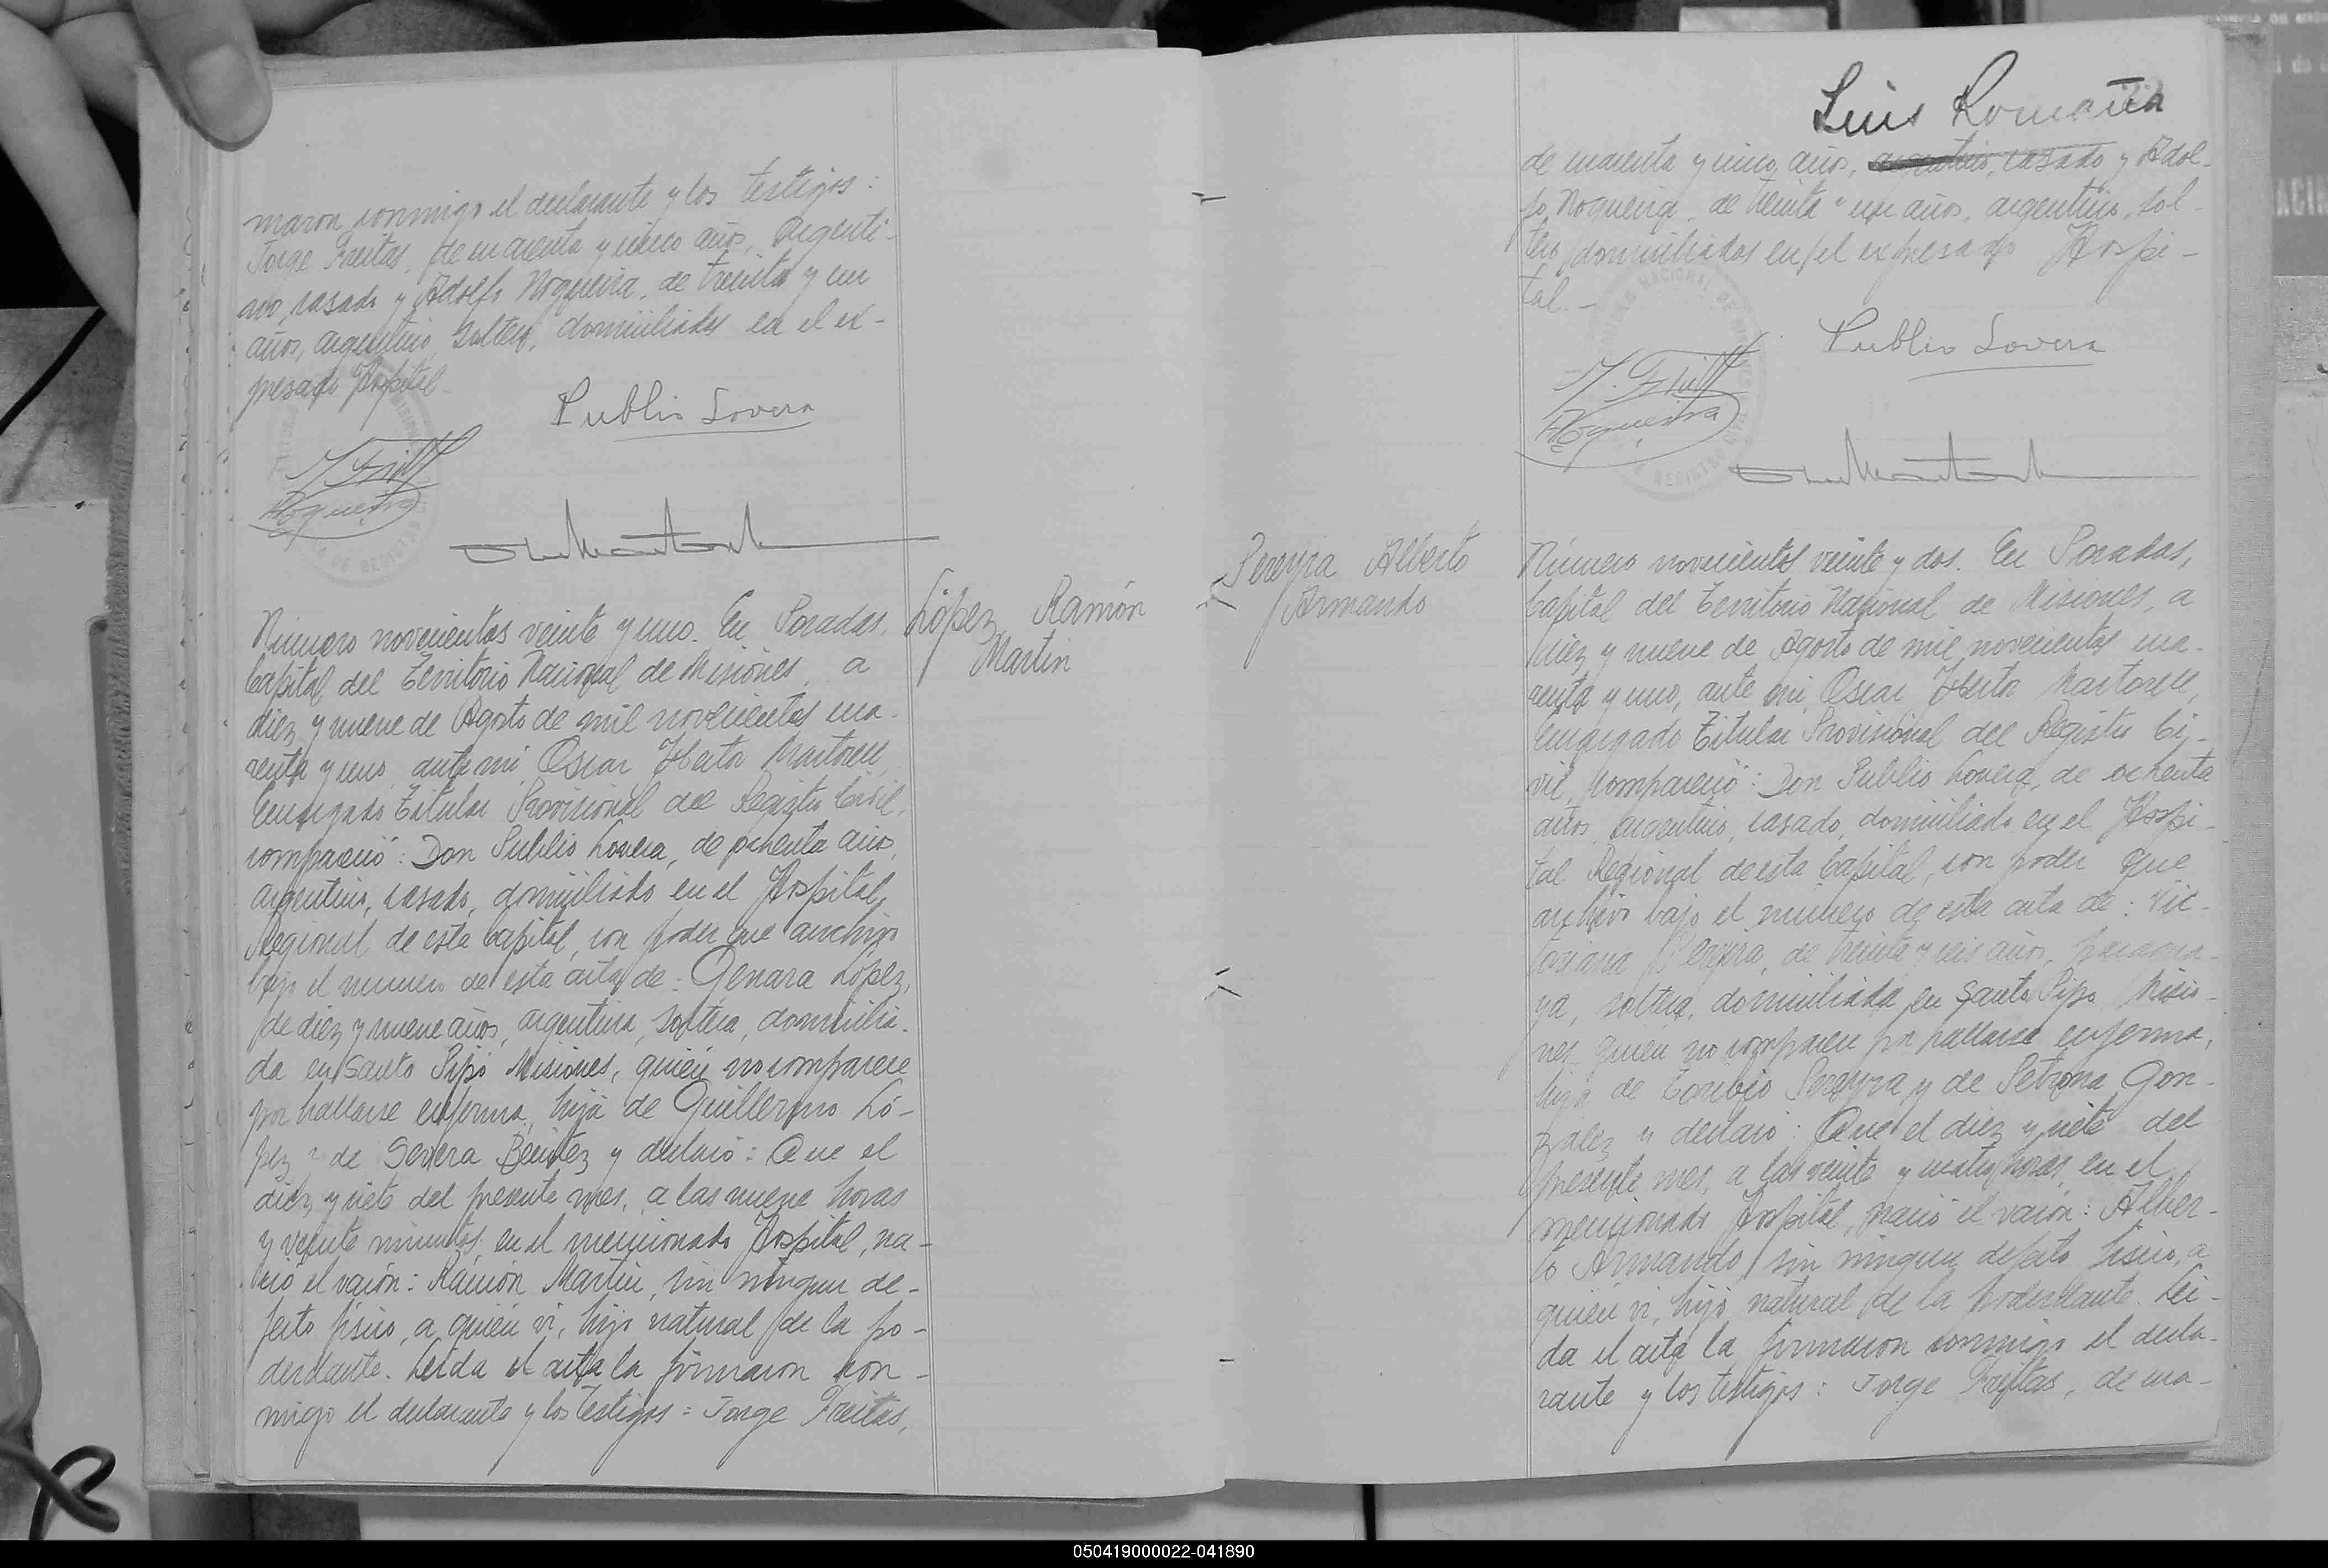 maron conmigo el declarante y los testigos:
Jorge Freitas, de cuarenta y cinco años, argenti-
no, casado y Adolfo Nogueira, de treinta y un
años, argentino, soltero, domiciliados en el ex-
presado Hospital.
Publio Lovera
Nogueira
Número novecientos veinte y uno. En Posadas,
Capital del Territorio Nacional de Misiones, a
diez y nueve de Agosto de mil novecientos cua-
renta y uno, ante mi, Oscar Hector Martorell,
Encargado Titular Provisional del Registro Civil,
compareció: Don Publio Lovera, de ochenta años,
argentino, casado, domiciliado en el Hospital
Regional de esta Capital, con poder que archivo
bajo el numero de esta acta de: Genara López,
de diez y nueve años, argentina, soltera, domicilia-
da en Santo Pipó Misiones, quién no comparece
por hallarse enferma, hija de Guillermo Ló-
pez y de Severa Benítez y declaró: Que el
diez y siete del presente mes, a las nueve horas
y veinte minutos, en el mencionado Hospital, na-
ció el varón: Ramón Martín, sin ningun de-
fecto físico, a quién vi, hijo natural de la po-
derdante. Leída el acta la firmaron con-
migo el declarante y los testigos: Jorge Freitas,
López Ramón
Martin
Luis Romaña
de cuarenta y cinco años, argentino, casado y Adol-
fo Nogueira, de treinta y un años, argentino, sol-
tero, domiciliados en el expresado Hospi-
tal.-
Publio Lovera
Nogueira
Pereyra Alberto
Armando
Número novecientos veinte y dos. En Posadas,
Capital del Territorio Nacional de Misiones, a
diez y nueve de Agosto de mil novecientos cua-
renta y uno, ante mi, Oscar Hector Martorell,
Encargado Titular Provisional del Registro Ci-
vil, compareció: Don Publio Lovera, de ochenta
años, argentino, casado, domiciliado en el Hospi-
tal Regional de esta Capital, con poder que
archivo bajo el número de esta acta de: Vic-
toriana Pereyra, de treinta y seis años, paragua-
ya, soltera, domiciliada en Santo Pipó Misio-
nes, quién no comparece por hallarse enferma,
hija de Toribio Pereyra y de Petrona Gon-
zalez y declaró: Que el diez y siete del
presente mes, a las veinte y cuatro horas, en el
mencionado Hospital, nació el varón: Alber-
to Armando, sin ningun defecto físico, a
quién vi, hijo natural de la poderdante. Leí-
da el acta la firmaron conmigo el decla-
rante y los testigos: Jorge Freitas, de cua-
050419000022-041890